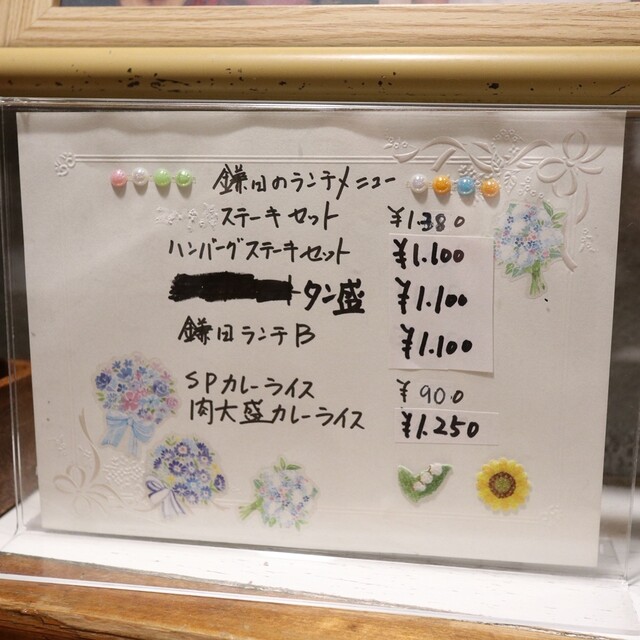 鎌田のランチメニュー
ステーキセット ¥1380
ハンバーグステーキセット ¥1.100
タン盛 ¥1.100
鎌田ランチB ¥1.100
SPカレーライス ¥900
肉大盛カレーライス ¥1.250